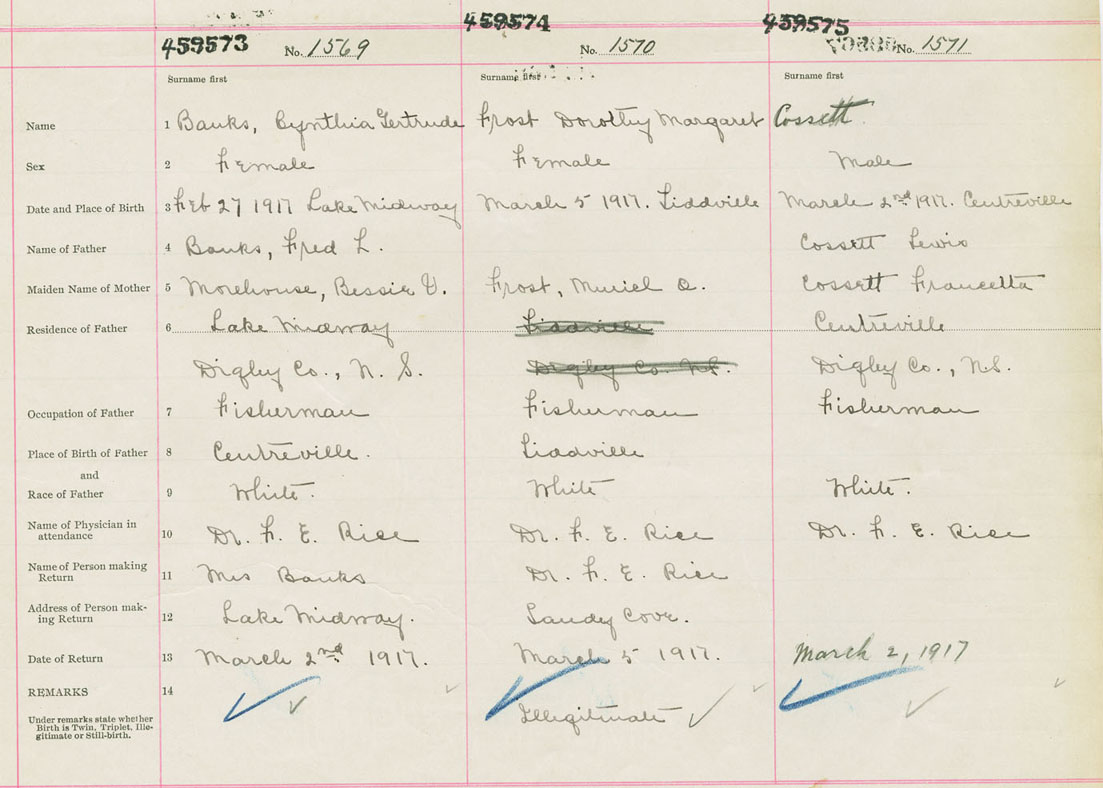 459573 No. 1569 459574 No. 1570 459575 No. 1571
Surname first Surname first Surname first
Name 1 Banks, Cynthia Gertrude Frost Dorothy Margaret Cossett
Sex 2 Female Female Male
Date and Place of Birth 3 Feb 27 1917 Lake Midway March 5 1917. Liddville March 2nd 1917. Centreville
Name of Father 4 Banks, Fred L. Cossett Lewis
Maiden Name of Mother 5 Morehouse, Bessie V. Frost, Muriel O. Cossett Francetta
Residence of Father 6 Lake Midway Liddville Centreville
Digby Co., N. S. Digby Co. N.S. Digby Co., N.S.
Occupation of Father 7 Fisherman Fisherman Fisherman
Place of Birth of Father 8 Centreville. Liddville
and
Race of Father 9 White. White White.
Name of Physician in
attendance 10 Dr. F. E. Rice Dr. F. E. Rice Dr. F. E. Rice
Name of Person making
Return 11 Mrs Banks Dr. F. E. Rice
Address of Person mak-
ing Return 12 Lake Midway. Sandy Cove.
Date of Return 13 March 2nd 1917. March 5 1917. March 2, 1917
REMARKS 14
Under remarks state whether
Birth is Twin, Triplet, Ille-
gitimate or Still-birth.
Illegitimate